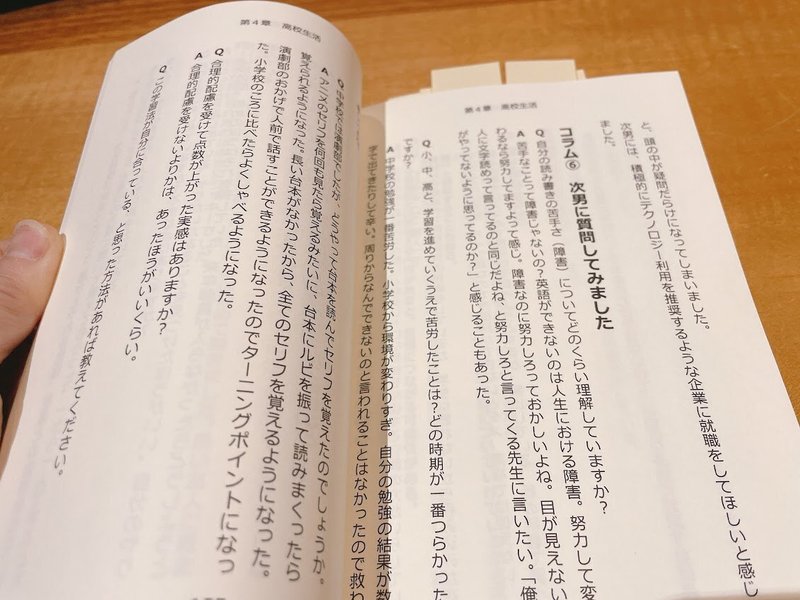 第4章　高校生活
と、頭の中が疑問だらけになってしまいました。
次男には、積極的にテクノロジー利用を推奨するような企業に就職をしてほしいと感じ
ました。
コラム⑥　次男に質問してみました
Q 自分の読み書きの苦手さ（障害）についてどのくらい理解していますか？
A 苦手なことって障害じゃないの？英語ができないのは人生における障害。努力して変
わるなら努力してますよって感じ。障害なのに努力しろっておかしいよね。目が見えない
人に文字読めって言ってるのと同じだよね、と努力しろと言ってくる先生に言いたい。「俺
がやってないように思ってるのか？」と感じることもあった。
Q 小、中、高と、学習を進めていくうえで苦労したことは？どの時期が一番つらかった
ですか？
A 中学校の勉強が一番苦労した。小学校から環境が変わりすぎ。自分の勉強の結果が数
字で出てきたりして辛い。周りからなんでできないのと言われることはなかったので救わ
第4章　高校生活
Q 中学校では演劇部でしたが、どうやって台本を読んでセリフを覚えたのでしょうか。
A アニメのセリフを何回も見たら覚えるみたいに、台本にルビを振って読みまくったら
覚えられるようになった。長い台本がなかったから、全てのセリフを覚えるようになった。
演劇部のおかげで人前で話すことができるようになったのでターニングポイントになっ
た。小学校のころに比べたらよくしゃべるようになった。
Q 合理的配慮を受けて点数が上がった実感はありますか？
A 合理的配慮を受けないよりかは、あったほうがいいくらい。
Q この学習法が自分に合っている、と思った方法があれば教えてください。